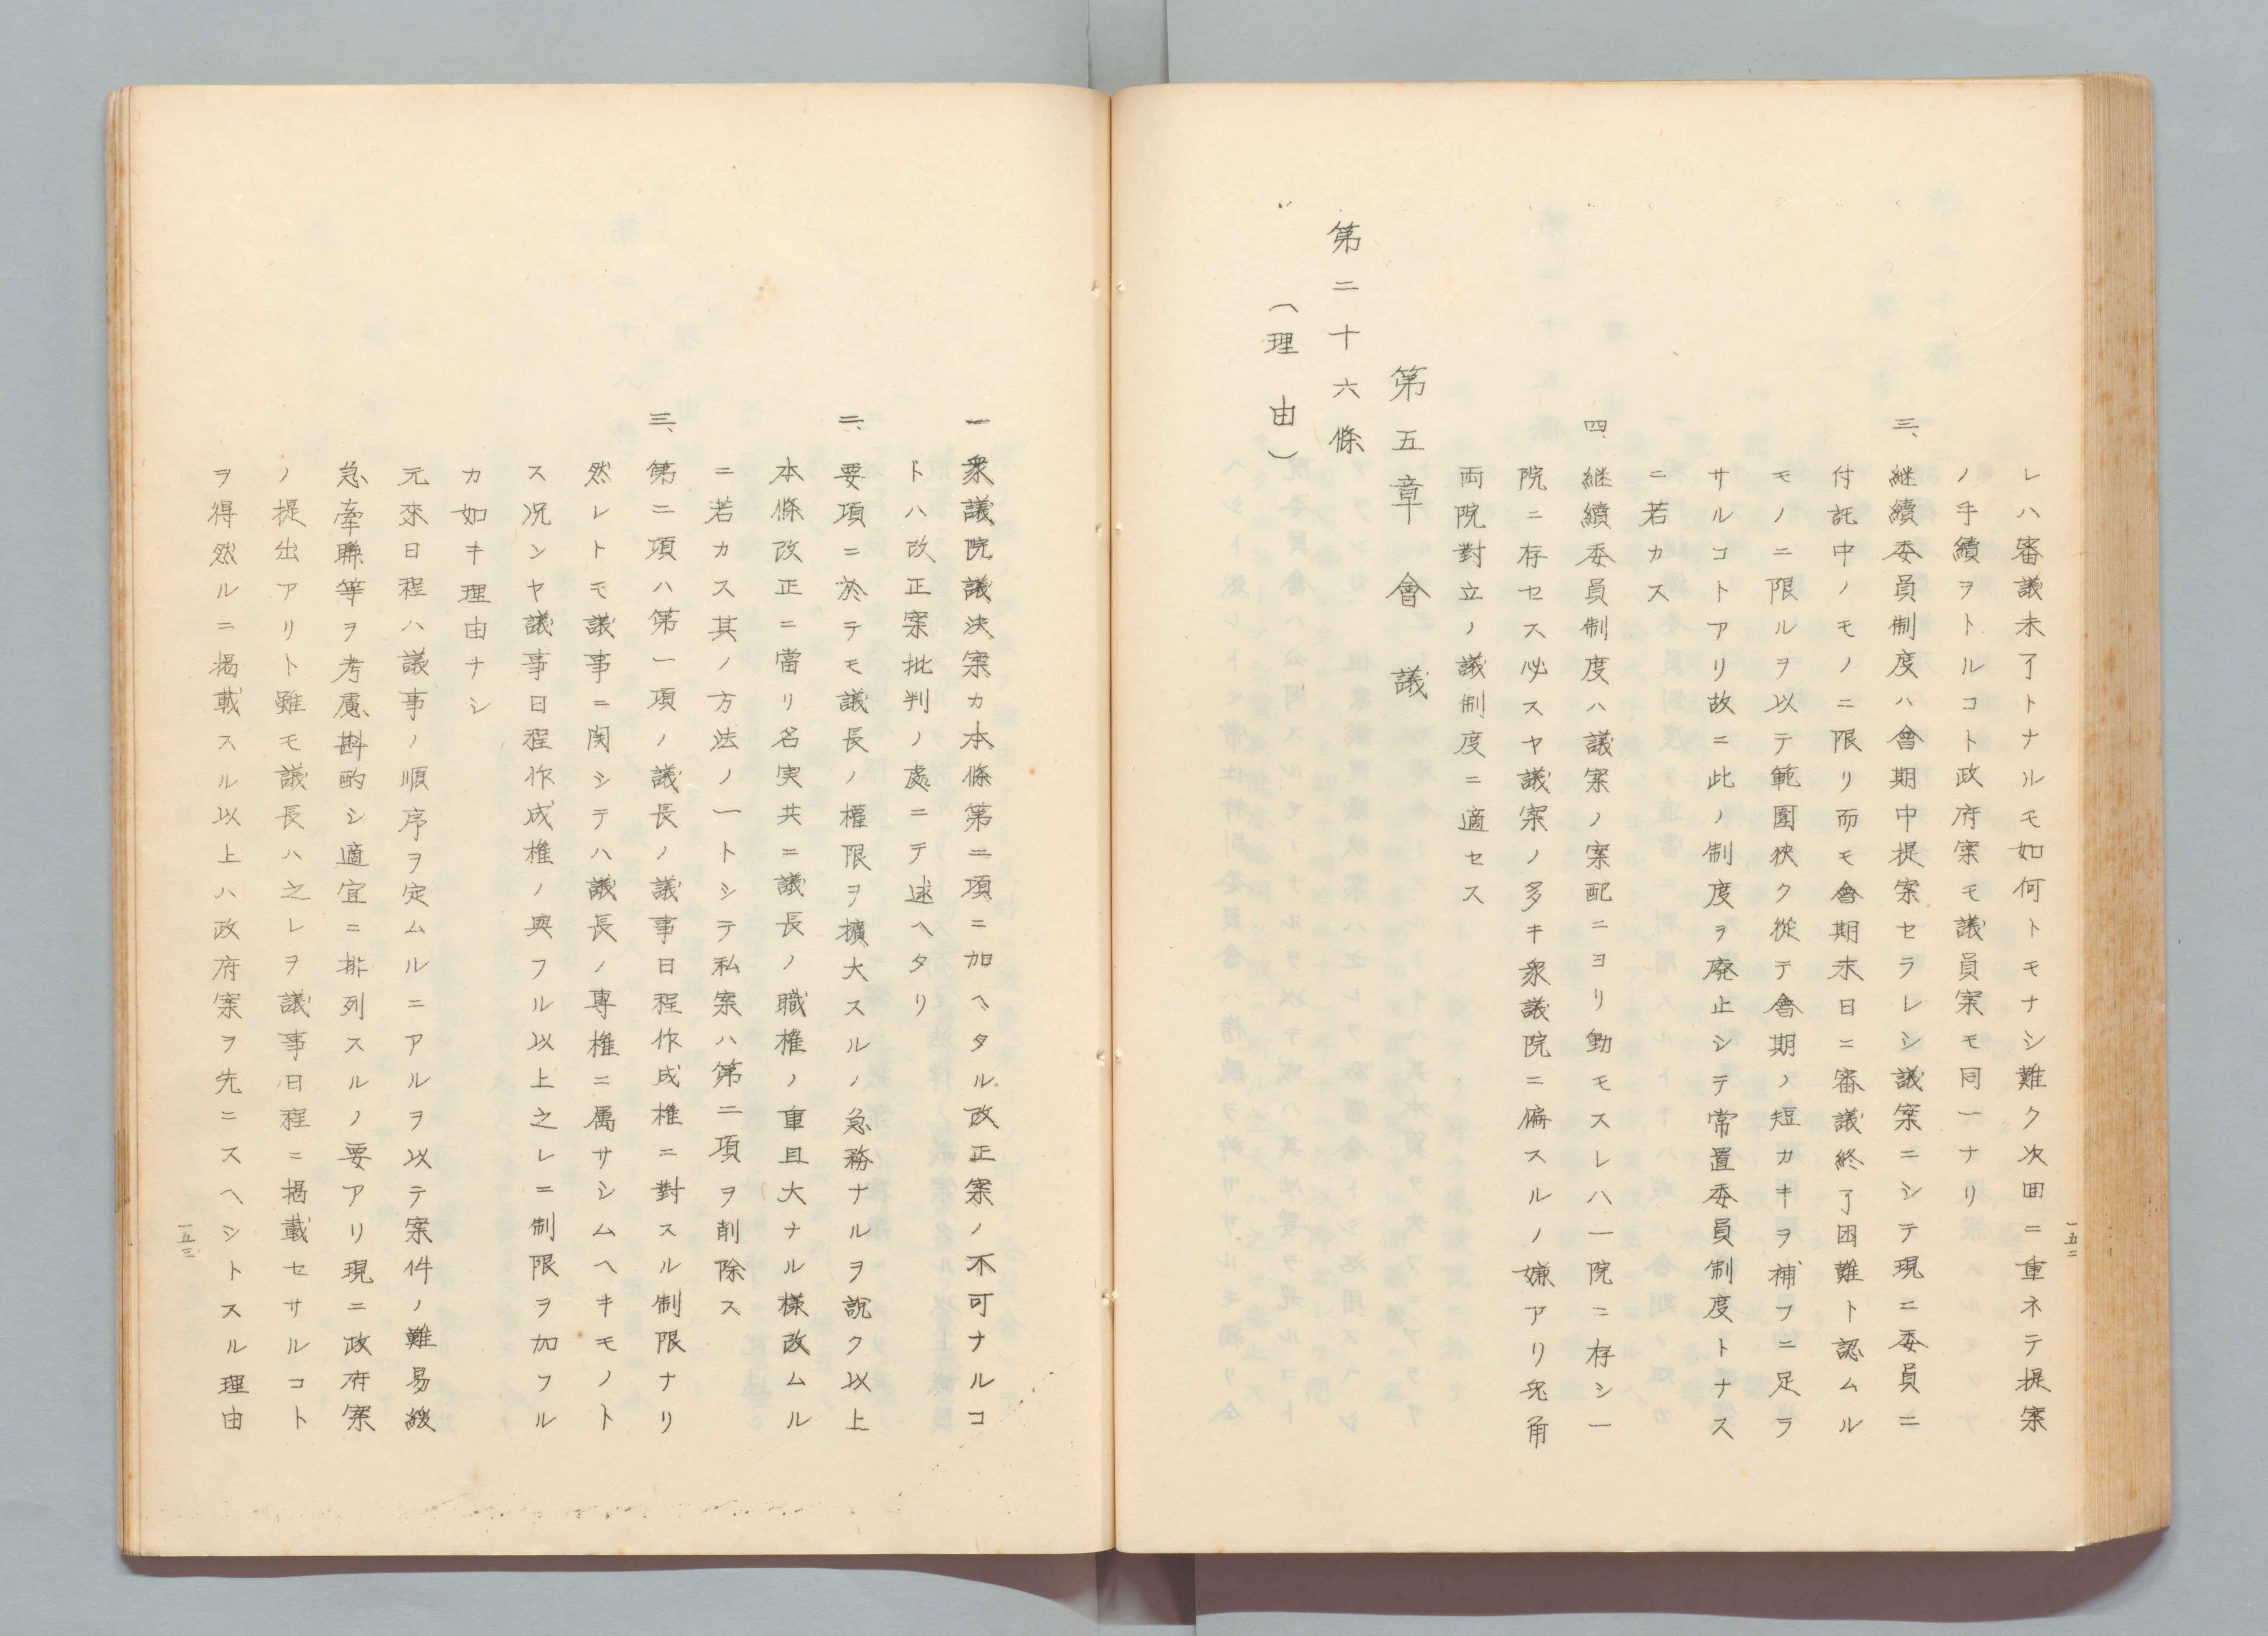 レハ審議未了トナルモ如何トモナシ難ク次回ニ重ネテ提案
ノ手續ヲトルコト政府案モ議員案モ同一ナリ
三、継續委員制度ハ會期中提案セラレシ議案ニシテ現ニ委員ニ
付託中ノモノニ限リ而モ會期末日ニ審議終了困難ト認ムル
モノニ限ルヲ以テ範圍狹ク從テ會期ノ短カキヲ補フニ足ラ
サルコトアリ故ニ此ノ制度ヲ廃止シテ常置委員制度トナス
ニ若カス
四、継續委員制度ハ議案ノ案配ニヨリ動モスレハ一院ニ存シ一
院ニ存セス必スヤ議案ノ多キ衆議院ニ偏スルノ嫌アリ兎角
両院對立ノ議制度ニ適セス
第五章會議
第二十六條
(理由)
一五二
一衆議院議決案カ本條第二項ニ加ヘタル改正案ノ不可ナルコ
トハ改正案批判ノ處ニテ述ヘタリ
二、要項ニ於テモ議長ノ權限ヲ擴大スルノ急務ナルヲ說ク以上
本條改正ニ當リ名実共ニ議長ノ職権ノ重且大ナル様改ムル
ニ若カス其ノ方法ノ一トシテ私案ハ第二項ヲ削除ス
三、第二項ハ第一項ノ議長ノ議事日程作成権ニ對スル制限ナリ
然レトモ議事ニ関シテハ議長ノ專権ニ属サシムヘキモノト
ス况ンヤ議事日程作成権ノ興フル以上之レニ制限ヲ加フル
カ如キ理由ナシ
元來日程ハ議事ノ順序ヲ定ムルニアルヲ以テ案件ノ難易緩
急牽聯等ヲ考慮斟酌シ適宜ニ排列スルノ要アリ現ニ政府案
ノ提出アリト雖モ議長ハ之レヲ議事日程ニ揭載セサルコト
ヲ得然ルニ揭載スル以上ハ政府案ヲ先ニスヘシトスル理由
一五三